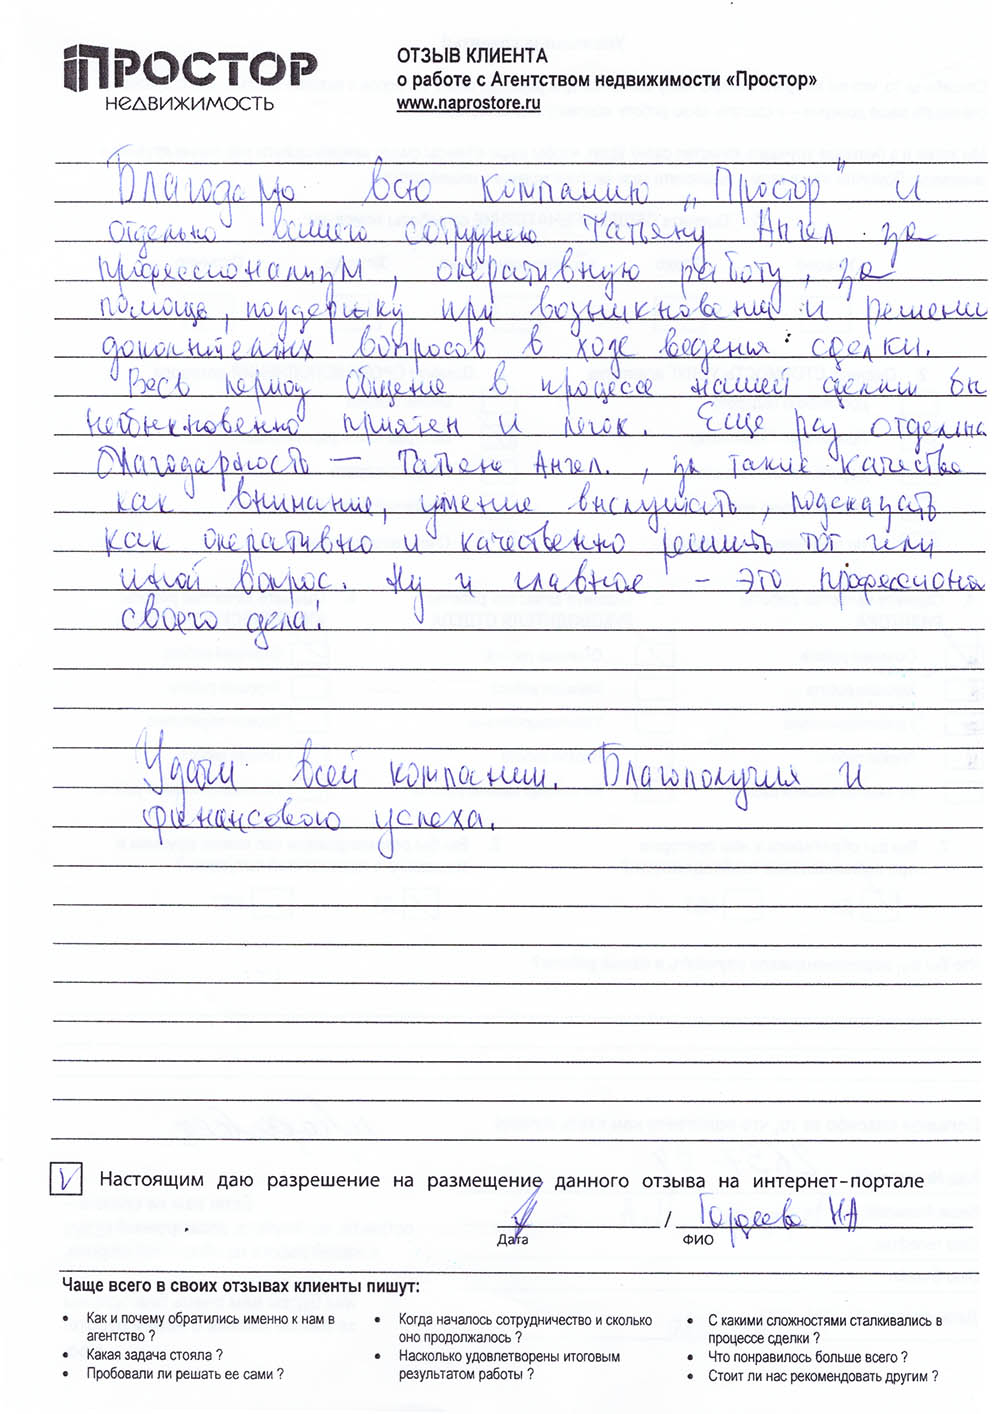 ПРОСТОР
НЕДВИЖИМОСТЬ
ОТЗЫВ КЛИЕНТА
о работе с Агентством недвижимости «Простор»
www.naprostore.ru
Благодарю всю компанию „Простор" и
отдельно вашего сотрудницу Татьяну Ангел за
профессионализм, оперативную работу, за
помощь, поддержку при возникновении и решении
дополнительных вопросов в ходе ведения сделки.
Весь период общение в процессе нашей сделки был
необыкновенно приятен и легок. Еще раз отдельна
благодарность — Татьяне Ангел., за такие качества
как внимание, умение выслушать, подсказать
как оперативно и качественно решить тот или
иной вопрос. Ну и главное - это профессионал
своего дела!
Удачи всей компании. Благополучия и
финансового успеха.
V Настоящим даю разрешение на размещение данного отзыва на интернет-портале
/ Гордеева НА
Дата ФИО
Чаще всего в своих отзывах клиенты пишут:
• Как и почему обратились именно к нам в агентство ?
• Какая задача стояла ?
• Пробовали ли решать ее сами ?
• Когда началось сотрудничество и сколько оно продолжалось ?
• Насколько удовлетворены итоговым результатом работы ?
• С какими сложностями сталкивались в процессе сделки ?
• Что понравилось больше всего ?
• Стоит ли нас рекомендовать другим ?